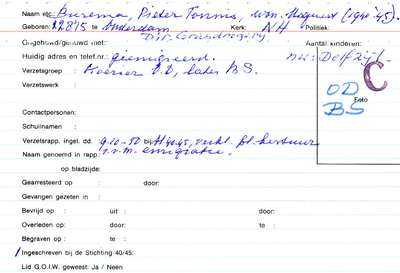 Naam etc: Burema, Pieter Tonnis, won. (1940-'45).
Geboren: 22815 te Kerk: NH Politiek:
Dir. Grasdrogerij
Ongehuwd/gehuwd met: Aantal kinderen:
Huidig adres en telef.nr.: geëmigreerd. Delfzijl.
Verzetsgroep : Koerier O.D, later B.S. C
Verzetswerk : OD
BS
Foto
Contactpersonen:
Schuilnaam :
Verzetsrapp. ingel. dd. 9-10-50 bij verkl. pl. bestuur
Naam genoemd in rapp.: i.v.m. emigratie.
op bladzijde:
Gearresteerd op : door:
Gevangen gezeten in :
Bevrijd op : uit : door:
Overleden op: door: te :
Begraven op : te :
Ingeschreven bij de Stichting 40/45:
Lid G.O.I.W. geweest: Ja / Neen